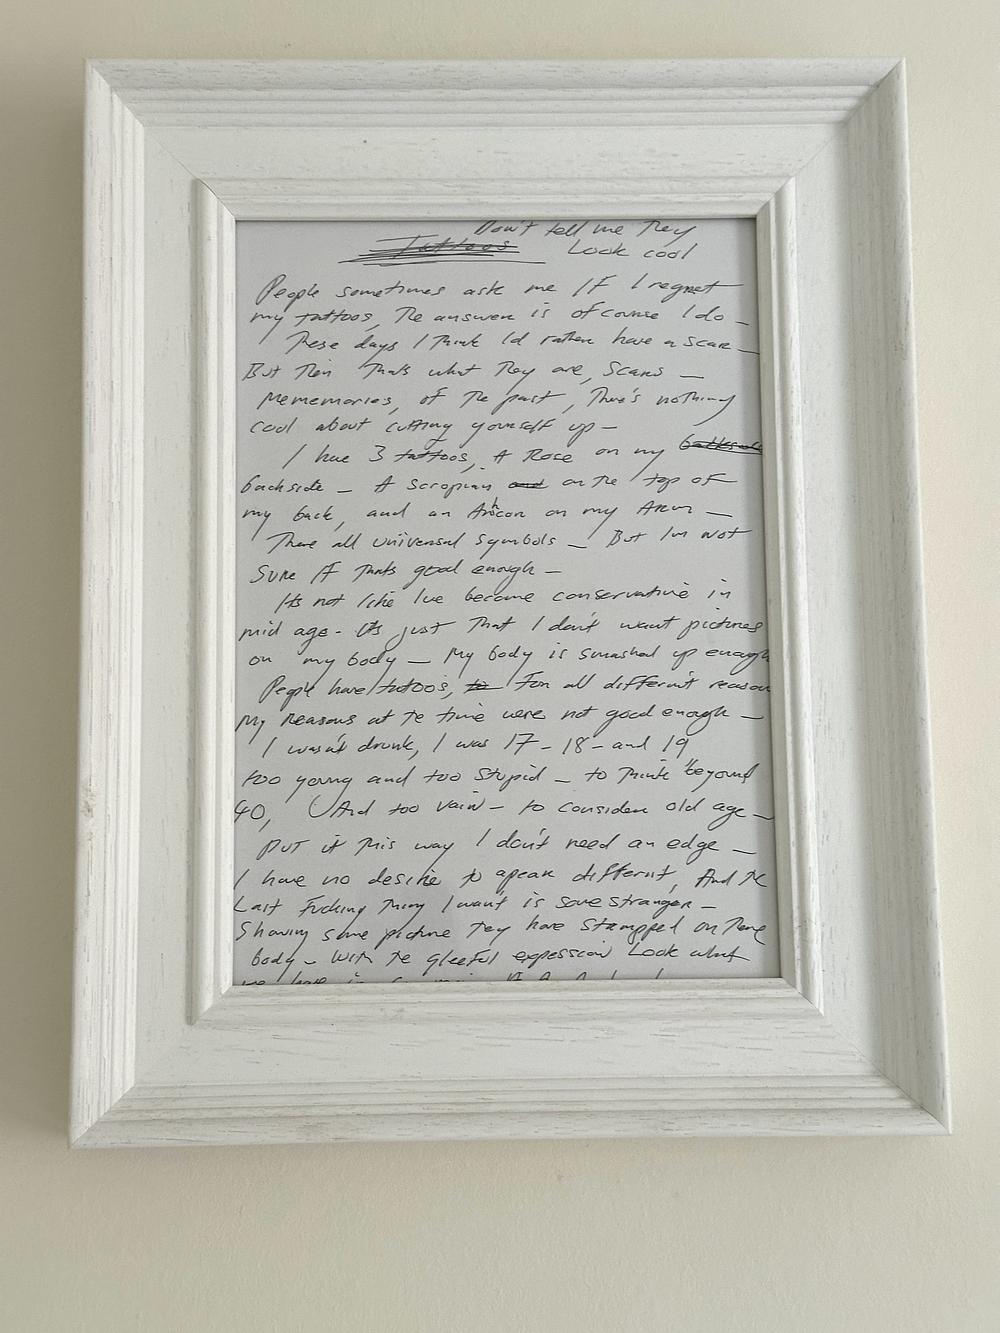 Don't tell me They
Tattoos Look cool
People sometimes ask me If I regret
my tattoos, The answer is of course I do –
These days I Think I'd rather have a scar –
But Then Thats what They are, Scars –
Mememories, of The past, There's nothing
cool about cutting yourself up –
I have 3 tattoos, A Rose on my
backside – A Scropian and on the top of
my back, and an Anhcon on my Arm –
There all universal Symbols – But Im not
Sure If Thats good enough –
Its not like Ive become conservative in
mid age - Its just That I don't want pictures
on my body – My body is smashed up enough
People have tattoos, to For all different reason
My Reasons at te time were not good enough –
I wasn't drunk, I was 17 - 18 - and 19
too young and too Stupid – to Think beyound
40, And too vain – to consider old age –
Put it This way I don't need an edge –
I have no desire to apear different, And the
Last Fucking Thing I want is some stranger –
Showing some picture Tey have Stampped on There
body – With te gleeful expession Look what
we have in